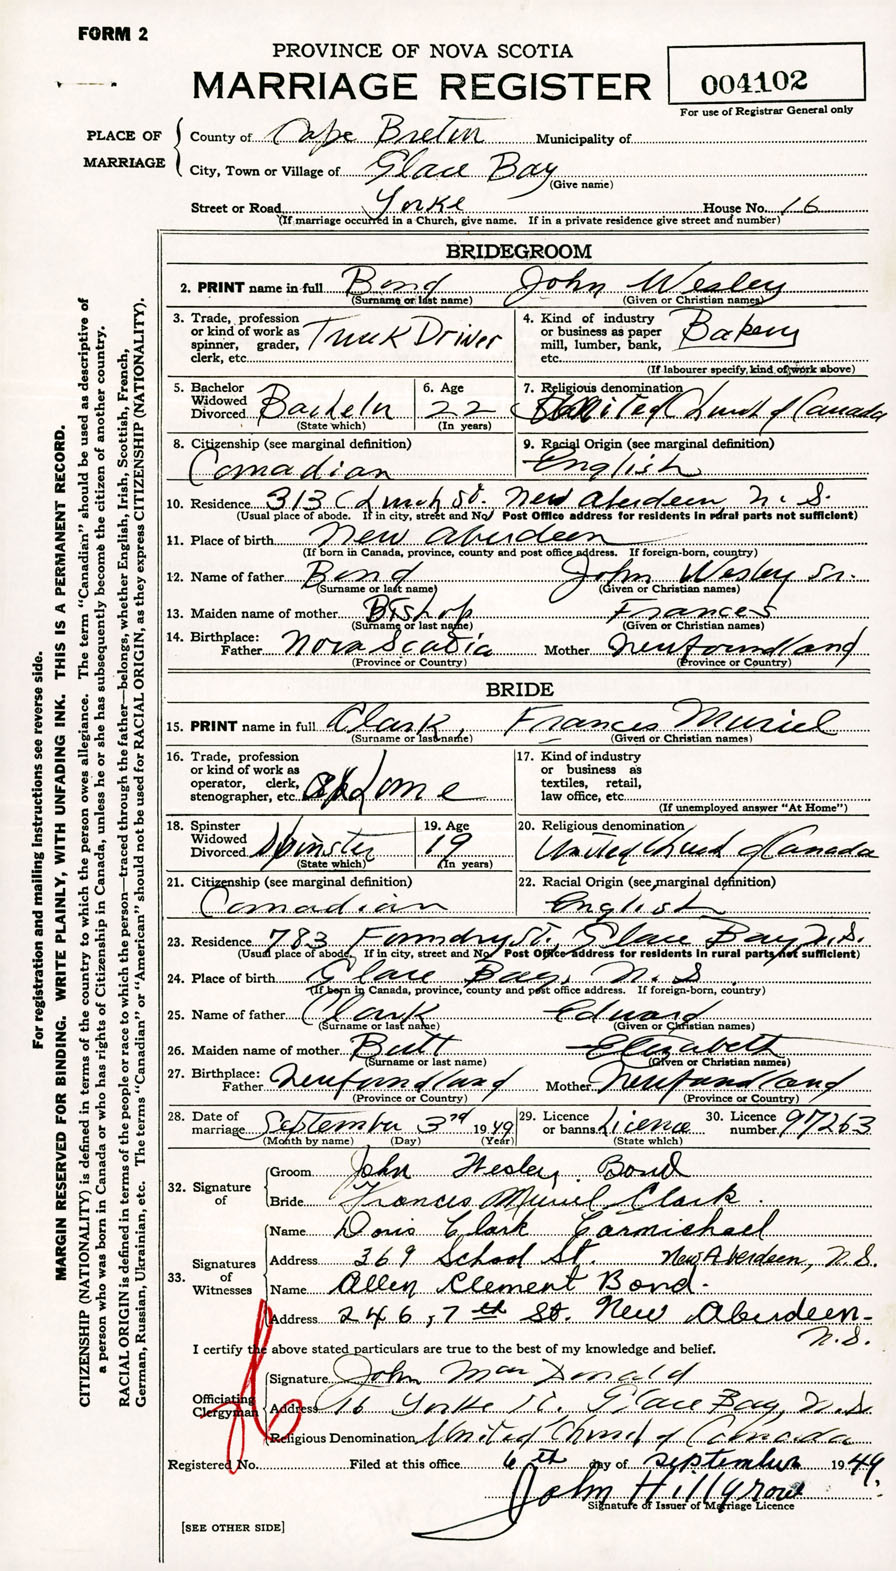 FORM 2
PROVINCE OF NOVA SCOTIA
MARRIAGE REGISTER
004102
For use of Registrar General only
PLACE OF MARRIAGE
County of Cape Breton Municipality of
City, Town or Village of Glace Bay
(Give name)
Street or Road Yorke House No. 16
(If marriage occurred in a Church, give name. If in a private residence give street and number)
BRIDEGROOM
2. PRINT name in full Bond John Wesley
(Surname or last name) (Given or Christian names)
3. Trade, profession or kind of work as spinner, grader, clerk, etc. Truck Driver
4. Kind of industry or business as paper mill, lumber, bank, etc. Bakery
(If labourer specify, kind of work above)
5. Bachelor Widowed Divorced Bachelor
(State which)
6. Age 22
(In years)
7. Religious denomination United Church of Canada
8. Citizenship (see marginal definition) Canadian
9. Racial Origin (see marginal definition) English
10. Residence 313 Church St. New Aberdeen, N. S.
(Usual place of abode. If in city, street and No. Post Office address for residents in rural parts not sufficient)
11. Place of birth New Aberdeen
(If born in Canada, province, county and post office address. If foreign-born, country)
12. Name of father Bond John Wesley Sr.
(Surname or last name) (Given or Christian names)
13. Maiden name of mother Bishop Frances
(Surname or last name) (Given or Christian names)
14. Birthplace: Father Nova Scotia Mother Newfoundland
(Province or Country) (Province or Country)
BRIDE
15. PRINT name in full Clark, Frances Muriel
(Surname or last name) (Given or Christian names)
16. Trade, profession or kind of work as operator, clerk, stenographer, etc. at Home
17. Kind of industry or business as textiles, retail, law office, etc.
(If unemployed answer "At Home")
18. Spinster Widowed Divorced Spinster
(State which)
19. Age 19
(In years)
20. Religious denomination United Church of Canada
21. Citizenship (see marginal definition) Canadian
22. Racial Origin (see marginal definition) English
23. Residence 783 Foundry St., Glace Bay, N.S.
(Usual place of abode. If in city, street and No. Post Office address for residents in rural parts not sufficient)
24. Place of birth Glace Bay, N. S.
(If born in Canada, province, county and post office address. If foreign-born, country)
25. Name of father Clark Edward
(Surname or last name) (Given or Christian names)
26. Maiden name of mother Butt Elizabeth
(Surname or last name) (Given or Christian names)
27. Birthplace: Father Newfoundland Mother Newfoundland
(Province or Country) (Province or Country)
28. Date of marriage September 3rd 1949
(Month by name) (Day) (Year)
29. Licence or banns Licence
(State which)
30. Licence number 97263
32. Signature of
Groom John Wesley Bond
Bride Frances Muriel Clark.
33. Signatures of Witnesses
Name Doris Clark Carmichael
Address 369 School St. New Aberdeen, N.S.
Name Allen Clement Bond.
Address 246, 7th St. New Aberdeen-
N.S.
I certify the above stated particulars are true to the best of my knowledge and belief.
Officiating Clergyman
Signature John MacDonald
Address 16 Yorke St. Glace Bay, N.S.
Religious Denomination United Church of Canada
Registered No. Filed at this office 6th day of September 1949.
John Hillgrove
Signature of Issuer of Marriage Licence
[SEE OTHER SIDE]
For registration and mailing instructions see reverse side.
MARGIN RESERVED FOR BINDING. WRITE PLAINLY, WITH UNFADING INK. THIS IS A PERMANENT RECORD.
CITIZENSHIP (NATIONALITY) is defined in terms of the country to which the person owes allegiance. The term "Canadian" should be used as descriptive of
a person who was born in Canada or who has rights of Citizenship in Canada, unless he or she has subsequently become the citizen of another country.
RACIAL ORIGIN is defined in terms of the people or race to which the person—traced through the father—belongs, whether English, Irish, Scottish, French,
German, Russian, Ukrainian, etc. The terms "Canadian" or "American" should not be used for RACIAL ORIGIN, as they express CITIZENSHIP (NATIONALITY).